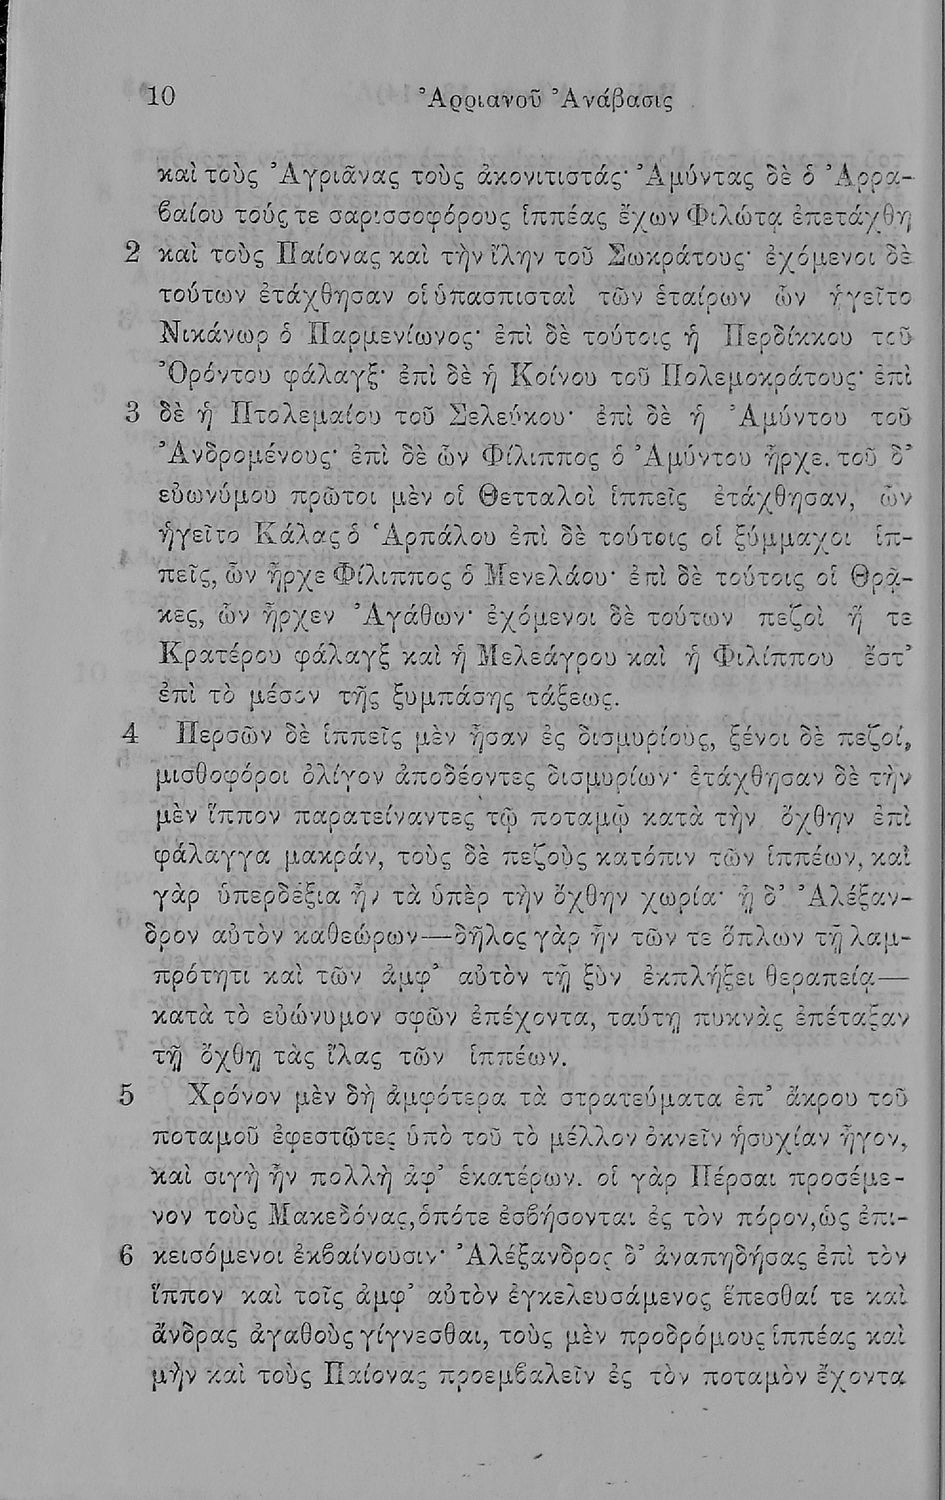 10 Ἀρριανοῦ Ἀνάβασις
καὶ τοὺς Ἀγριᾶνας τοὺς ἀκοντιστάς· Ἀμύντας δὲ ὁ Ἀρρα-
βαίου τούς τε σαρισσοφόρους ἱππέας ἔχων Φιλώτᾳ ἐπετάχθη
2 καὶ τοὺς Παίονας καὶ τὴν ἴλην τοῦ Σωκράτους· ἐχόμενοι δὲ
τούτων ἐτάχθησαν οἱ ὑπασπισταὶ τῶν ἑταίρων ὧν ἡγεῖτο
Νικάνωρ ὁ Παρμενίωνος· ἐπὶ δὲ τούτοις ἡ Περδίκκου τοῦ
Ὀρόντου φάλαγξ· ἐπὶ δὲ ἡ Κοίνου τοῦ Πολεμοκράτους· ἐπὶ
3 δὲ ἡ Πτολεμαίου τοῦ Σελεύκου· ἐπὶ δὲ ἡ Ἀμύντου τοῦ
Ἀνδρομένους· ἐπὶ δὲ ὧν Φίλιππος ὁ Ἀμύντου ἦρχε. τοῦ δ’
εὐωνύμου πρῶτοι μὲν οἱ Θετταλοὶ ἱππεῖς ἐτάχθησαν, ὧν
ἡγεῖτο Κάλας ὁ Ἁρπάλου ἐπὶ δὲ τούτοις οἱ ξύμμαχοι ἱπ-
πεῖς, ὧν ἦρχε Φίλιππος ὁ Μενελάου· ἐπὶ δὲ τούτοις οἱ Θρᾷ-
κες, ὧν ἦρχεν Ἀγάθων· ἐχόμενοι δὲ τούτων πεζοὶ ἥ τε
Κρατέρου φάλαγξ καὶ ἡ Μελεάγρου καὶ ἡ Φιλίππου ἔστ’
ἐπὶ τὸ μέσον τῆς ξυμπάσης τάξεως.
4 Περσῶν δὲ ἱππεῖς μὲν ἦσαν ἐς δισμυρίους, ξένοι δὲ πεζοί,
μισθοφόροι ὀλίγον ἀποδέοντες δισμυρίων· ἐτάχθησαν δὲ τὴν
μὲν ἵππον παρατείναντες τῷ ποταμῷ κατὰ τὴν ὄχθην ἐπὶ
φάλαγγα μακράν, τοὺς δὲ πεζοὺς κατόπιν τῶν ἱππέων, καὶ
γὰρ ὑπερδέξια ἦν τὰ ὑπὲρ τὴν ὄχθην χωρία· ᾗ δ’ Ἀλέξαν-
δρον αὐτὸν καθεώρων—δῆλος γὰρ ἦν τῶν τε ὅπλων τῇ λαμ-
πρότητι καὶ τῶν ἀμφ’ αὐτὸν τῇ ξὺν ἐκπλήξει θεραπείᾳ—
κατὰ τὸ εὐώνυμον σφῶν ἐπέχοντα, ταύτῃ πυκνὰς ἐπέταξαν
τῇ ὄχθῃ τὰς ἴλας τῶν ἱππέων.
5 Χρόνον μὲν δὴ ἀμφότερα τὰ στρατεύματα ἐπ’ ἄκρου τοῦ
ποταμοῦ ἐφεστῶτες ὑπὸ τοῦ τὸ μέλλον ὀκνεῖν ἡσυχίαν ἦγον,
καὶ σιγὴ ἦν πολλὴ ἀφ’ ἑκατέρων. οἱ γὰρ Πέρσαι προσέμε-
νον τοὺς Μακεδόνας, ὁπότε ἐσβήσονται ἐς τὸν πόρον, ὡς ἐπι-
6 κεισόμενοι ἐκβαίνουσιν· Ἀλέξανδρος δ’ ἀναπηδήσας ἐπὶ τὸν
ἵππον καὶ τοῖς ἀμφ’ αὐτὸν ἐγκελευσάμενος ἕπεσθαί τε καὶ
ἄνδρας ἀγαθοὺς γίγνεσθαι, τοὺς μὲν προδρόμους ἱππέας καὶ
μὴν καὶ τοὺς Παίονας προεμβαλεῖν ἐς τὸν ποταμὸν ἔχοντα